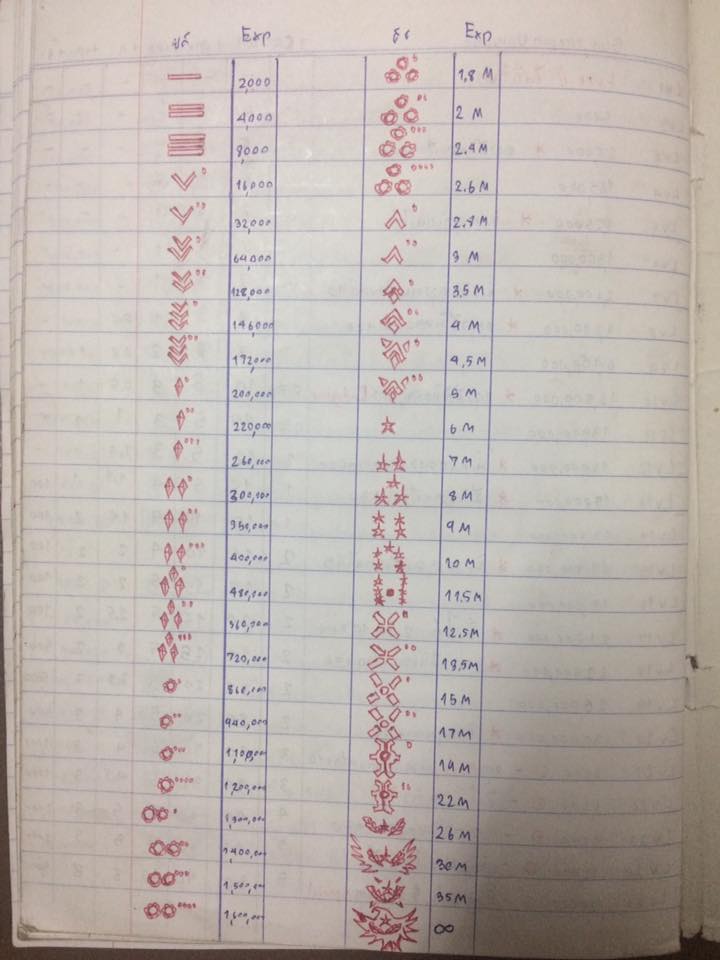 ยศ Exp ยศ Exp
2,000 1,8 M
4,000 2 M
8,000 2.4 M
16,000 2.6 M
32,000 2.8 M
64,000 3 M
128,000 3,5 M
146,000 4 M
172,000 4,5 M
200,000 5 M
220,000 6 M
260,000 7 M
300,000 8 M
350,000 9 M
400,000 10 M
480,000 11,5 M
560,000 12,5 M
720,000 13,5 M
860,000 15 M
940,000 17 M
1,100,000 19 M
1,200,000 22 M
1,300,000 26 M
1,400,000 30 M
1,500,000 35 M
1,600,000 ∞